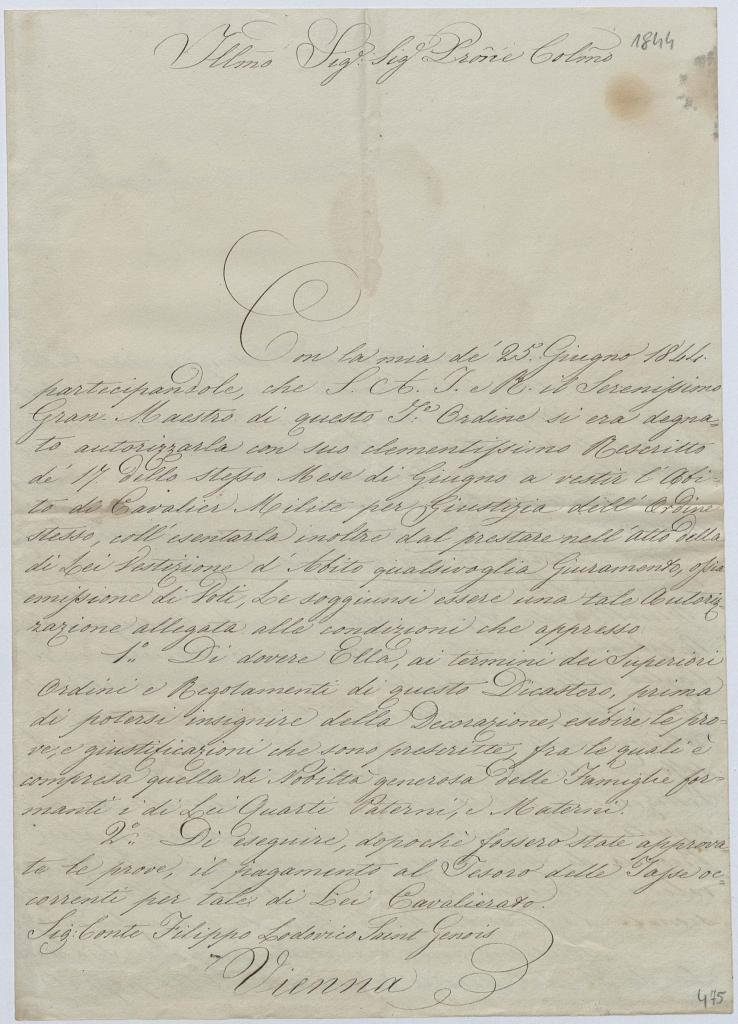 Illmo Sigr. Sigr. Prone Colmo
1844
Con la mia dé 25. Giugno 1844.
participandole, che S. A. I. e R. il Serenissimo
Gran- Maestro di questo I.e Ordine si era degna=
to autorizzarla con suo clementissimo Rescritto
dé 17 dello stesso Mese di Giugno a vestir l'Abi-
to di Cavalier Milite per Giustizia dell'Ordine
stesso, coll'esentarla inoltre dal prestare nell'atto della
di Lei Vestizione d'Abito qualsivoglia Giuramento, ossia
emissione di Voti, Le soggiunsi essere una tale Autoriz-
zazione allegata alle condizioni che appresso
1.o Di dovere Ella, ai termini dei Superiori
Ordini e Regolamenti di questo Dicastero, prima
di potersi insignire della Decorazione, esibire le pro-
ve, e giustificazioni che sono prescritte, fra le quali è
compresa quella di Nobiltà generosa delle Famiglie for-
manti i di Lei Quarti Paterni, e Materni.
2.o Di eseguire, dopochè fossero state approva-
te le prove, il pagamento al Tesoro delle Tasse oc=
correnti per tale di Lei Cavalierato.
Sig: Conte Filippo Lodovico Saint Genois
Vienna
475